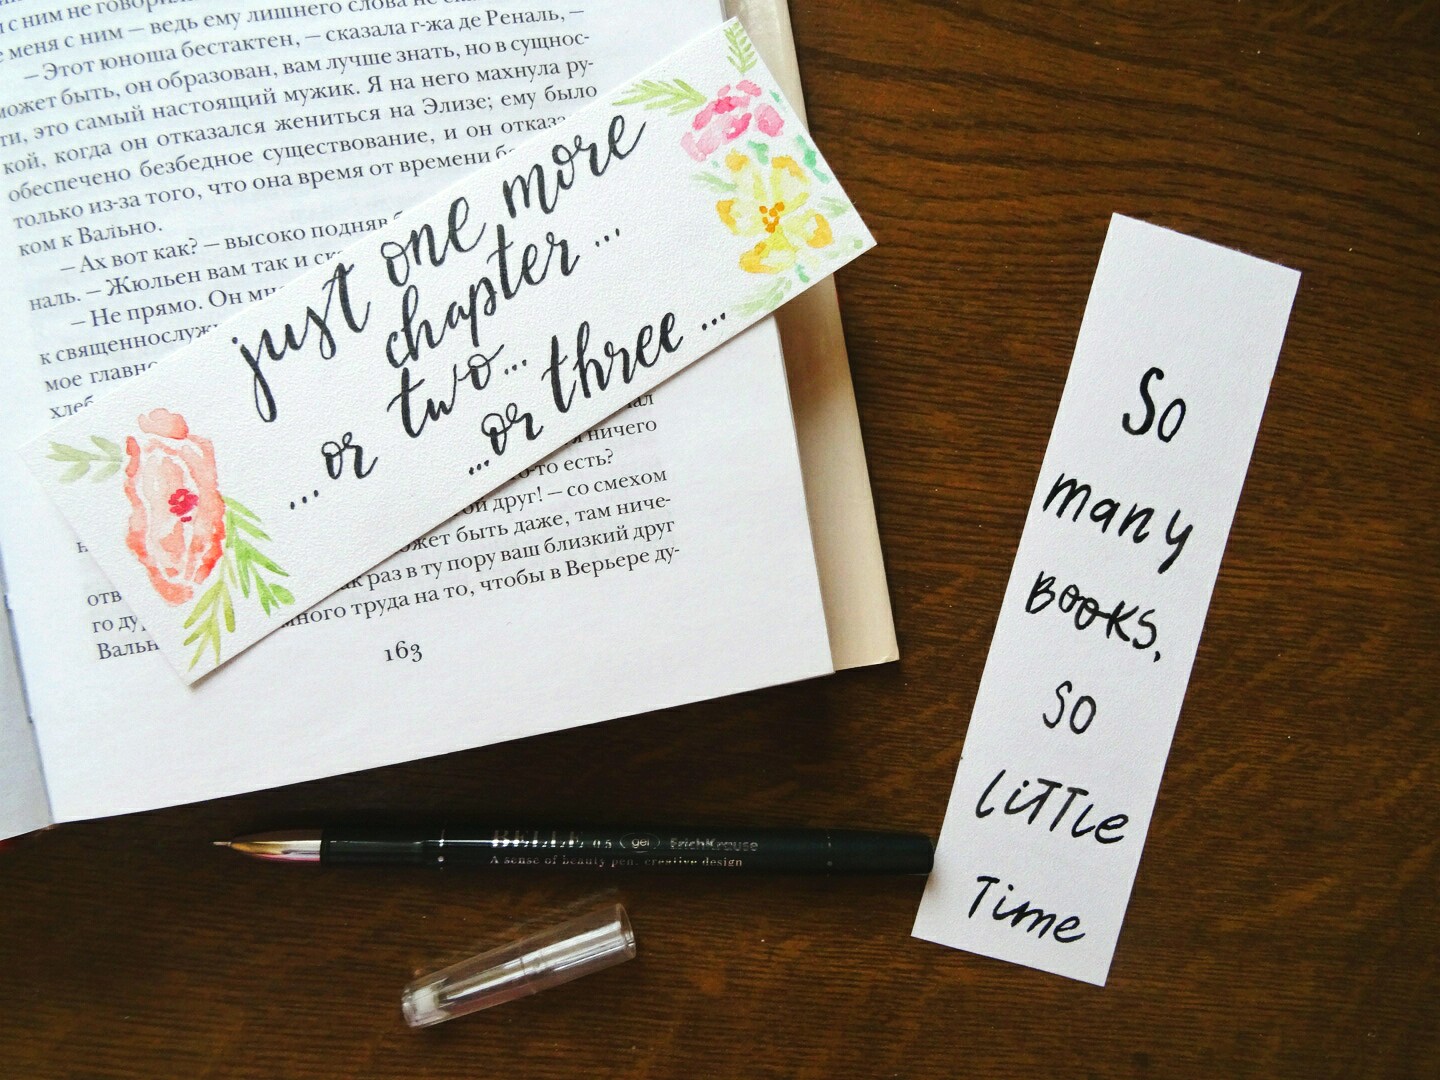 с ним не говори
меня с ним — ведь ему лишнего слова не ска
— Этот юноша бестактен, — сказала г-жа де Реналь, —
может быть, он образован, вам лучше знать, но в сущнос-
ти, это самый настоящий мужик. Я на него махнула ру-
кой, когда он отказался жениться на Элизе; ему было
обеспечено безбедное существование, и он отказа
только из-за того, что она время от времени бе
ком к Вально.
— Ах вот как? — высоко подняв б
наль. — Жюльен вам так и ск
— Не прямо. Он мно
к священнослуж
мое главно
хлеб
ал
ничего
о-то есть?
ой друг! — со смехом
ожет быть даже, там ниче-
ак раз в ту пору ваш близкий друг
отв
много труда на то, чтобы в Верьере ду-
го ду
Вальн
163
just one more
chapter...
...or two...
...or three...
So
many
BOOKS,
SO
LiTTle
Time
BELLE 0.5 gel ErichKrause
A sense of beauty pen, creative design